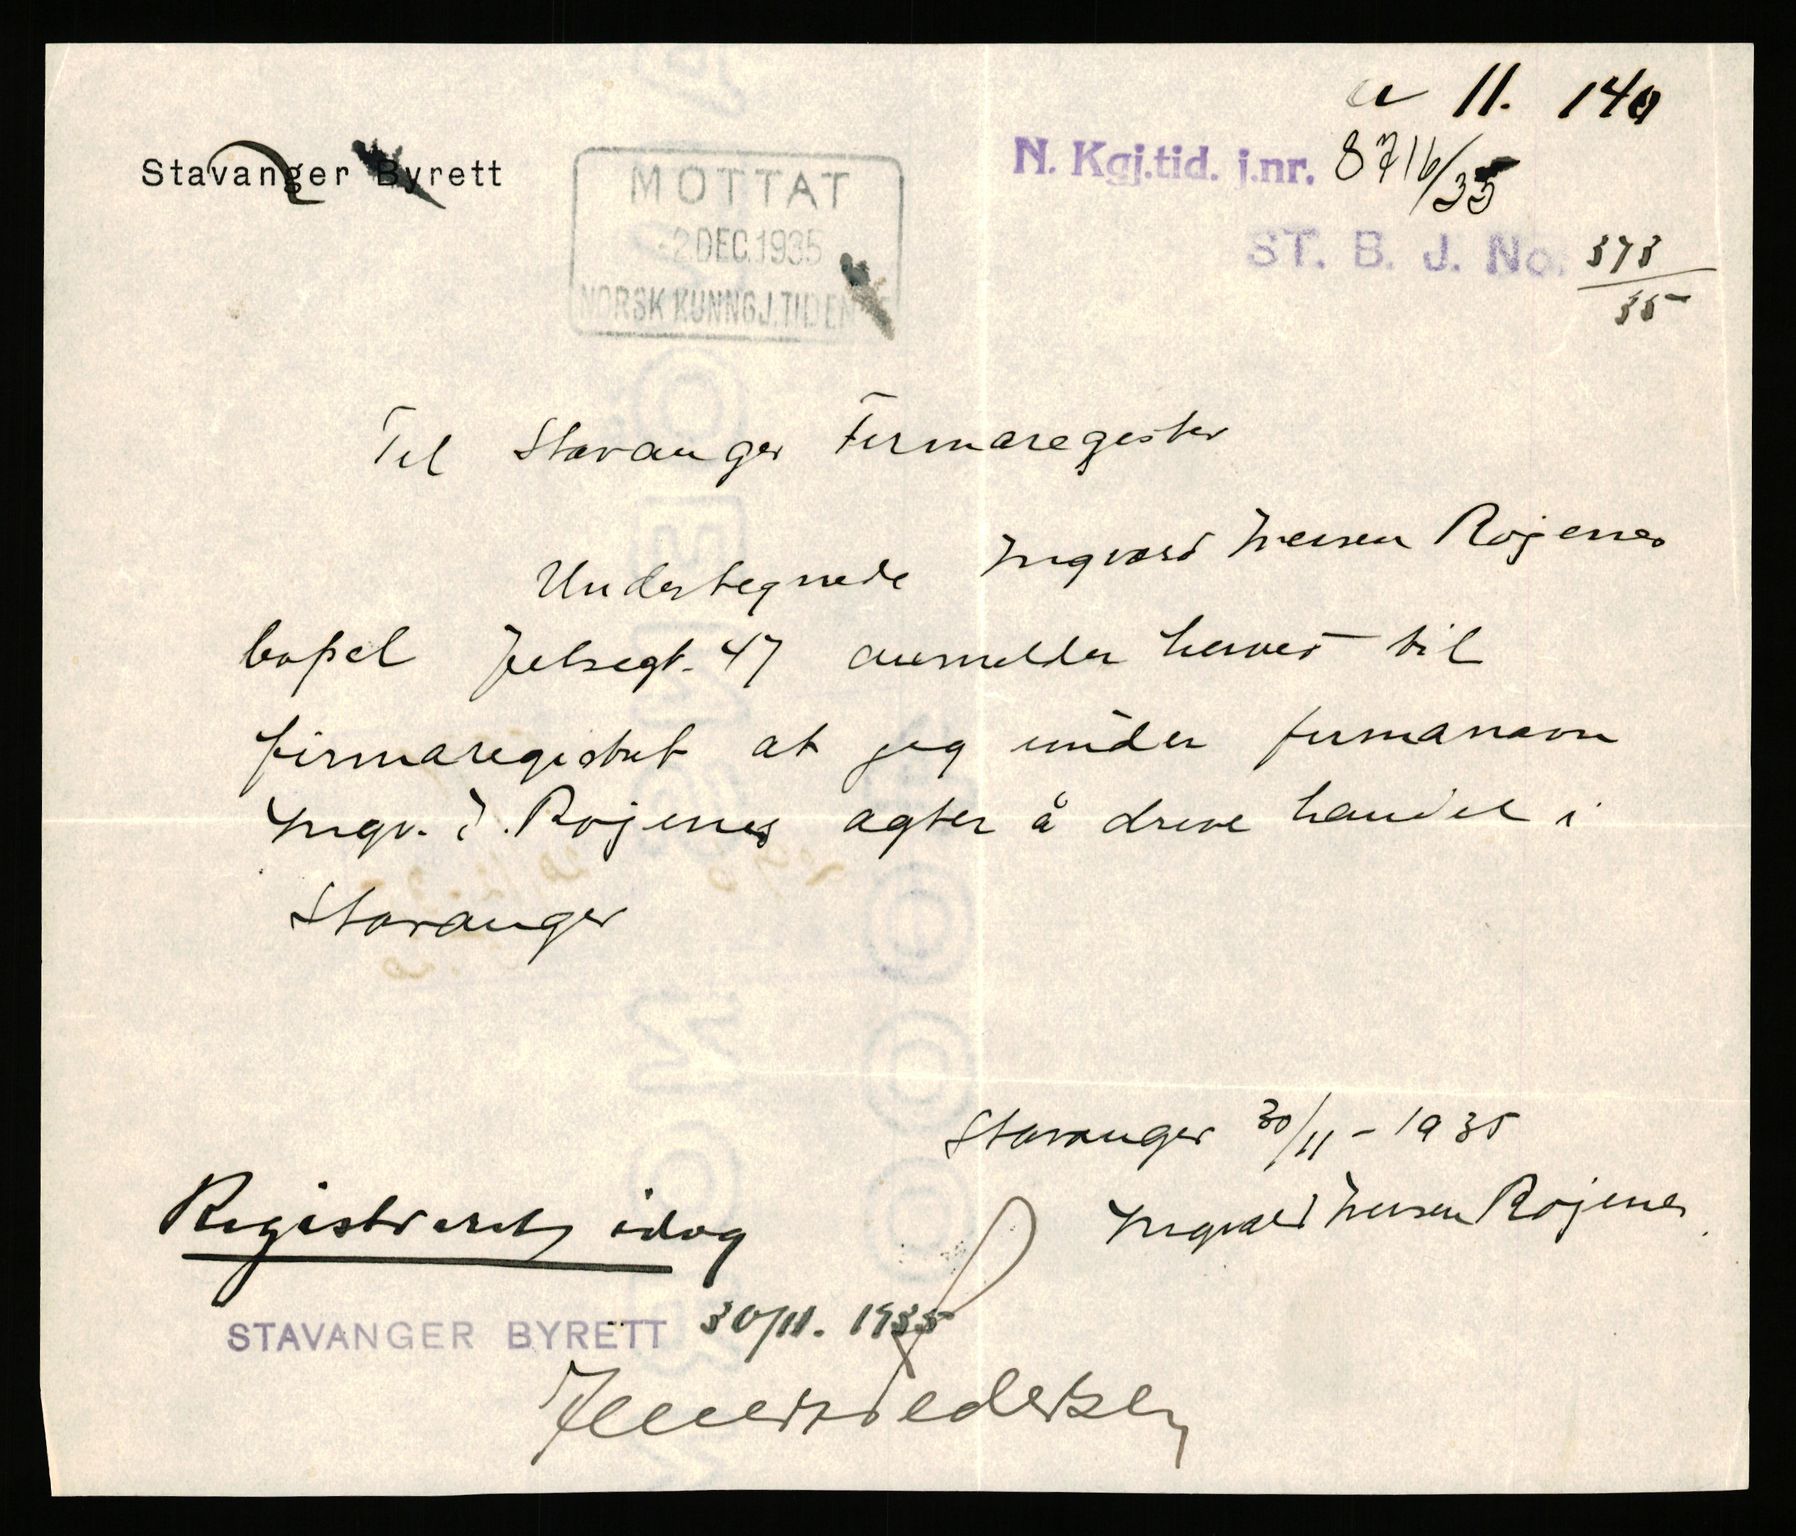 a 11. 140
Stavanger Byrett
MOTTAT
-2 DEC. 1935
NORSK KUNNGJ.TIDEN
N. Kgj.tid. j.nr. 8716/35
ST. B. J. No. 373/35
Til Stavanger Firmaregister
Undertegnede Ingvald Iversen Røjenes
bopel Jelsegt. 47 anmelder herved til
firmaregistret at jeg under firmanavn
Ingv. I. Røjenes agter å drive handel i
Stavanger
Stavanger 30/11 - 1935
Ingvald Iversen Røjenes
Registreret idag
STAVANGER BYRETT 30/11. 1935